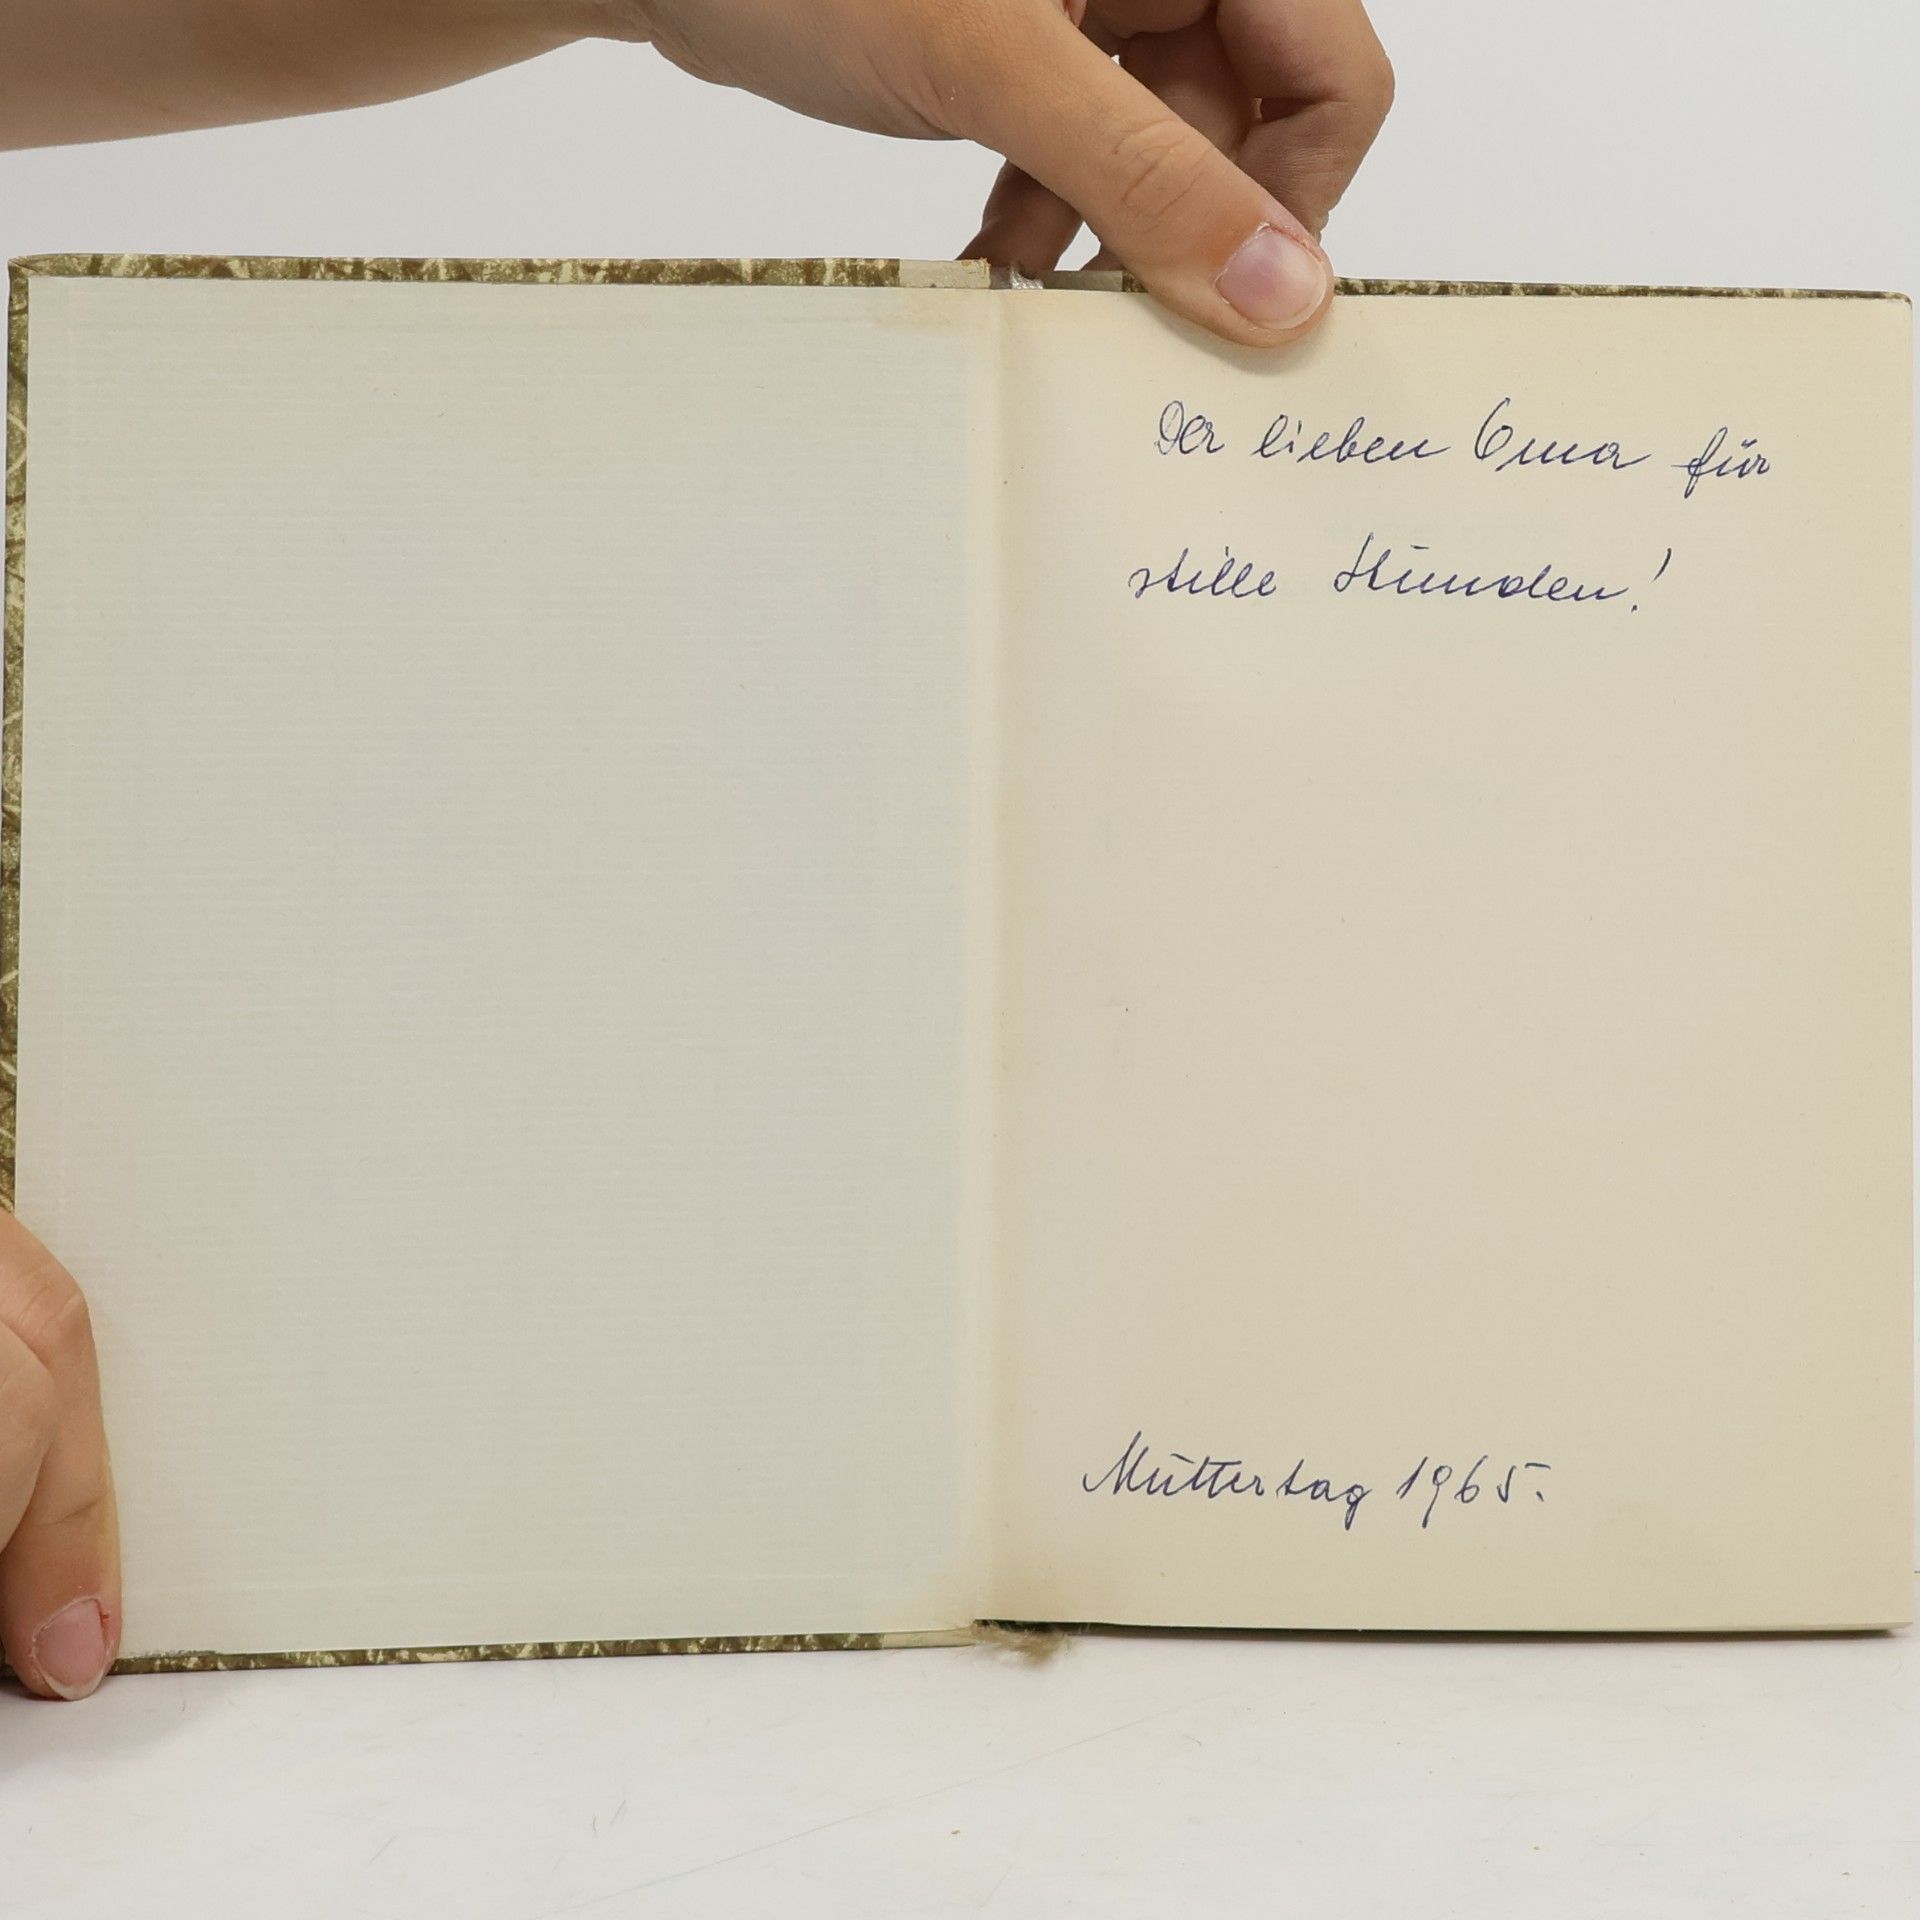 Der lieben Oma für
stille Stunden!
Muttertag 1965.